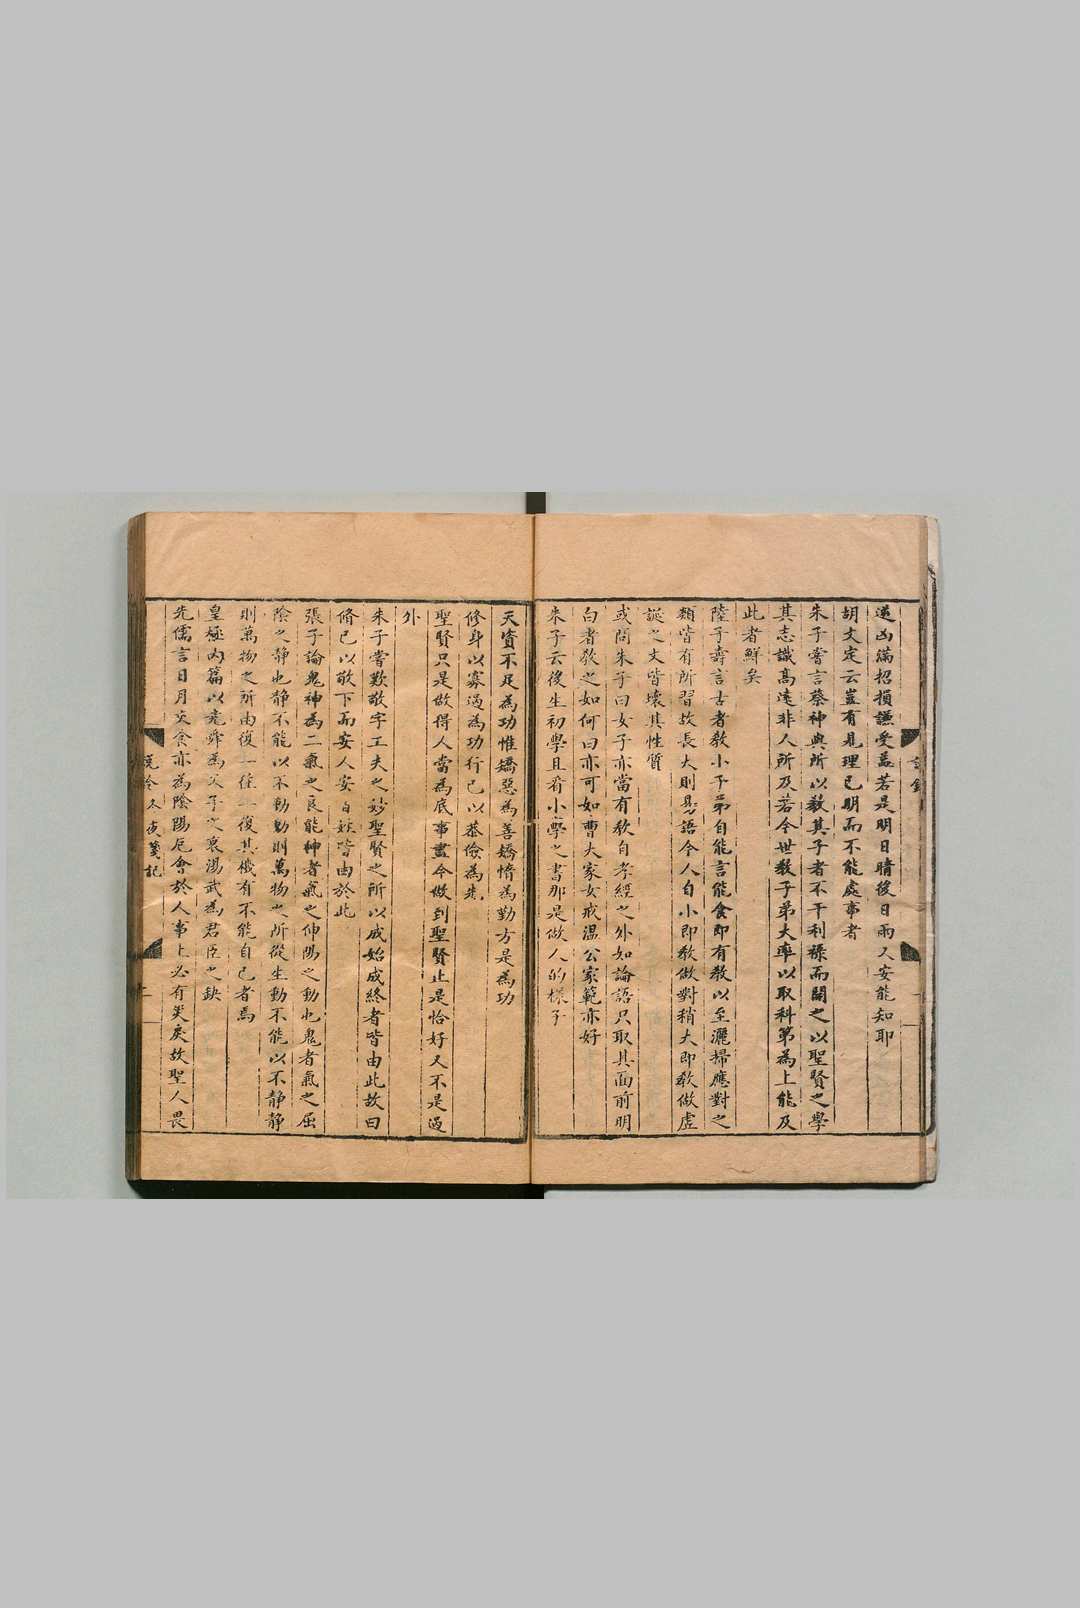 逆凶滿招損謙受益若是明日晴後日雨又安能知耶
胡文定云豈有見理已明而不能處事者
朱子嘗言蔡神與所以教其子者不干利祿而開之以聖賢之學
其志識高遠非人所及若今世教子弟大率以取科第為上能及
此者鮮矣
陸子壽言古者教小子弟自能言能食即有教以至灑掃應對之
類皆有所習故長大則易語今人自小即教做對稍大即教做虛
誕之文皆壞其性質
或問朱子曰女子亦當有教自孝經之外如論語只取其面前明
白者教之如何曰亦可如曹大家女戒溫公家範亦好
朱子云後生初學且看小學之書那是做人的樣子
天資不足為功惟矯惡為善矯惰為勤方是為功
修身以寡過為功行己以恭儉為先
聖賢只是做得人當為底事盡今做到聖賢止是恰好又不是過
外
朱子嘗歎敬字工夫之妙聖賢之所以成始成終者皆由此故曰
脩己以敬下而安人安百姓皆由於此
張子論鬼神為二氣之良能神者氣之伸陽之動也鬼者氣之屈
陰之靜也靜不能以不動動則萬物之所從生動不能以不靜靜
則萬物之所由復一往一復其機有不能自已者焉
皇極內篇以堯舜為父子之衰湯武為君臣之缺
先儒言日月交食亦為陰陽厄會於人事上必有災戾故聖人畏
冬夜箋記